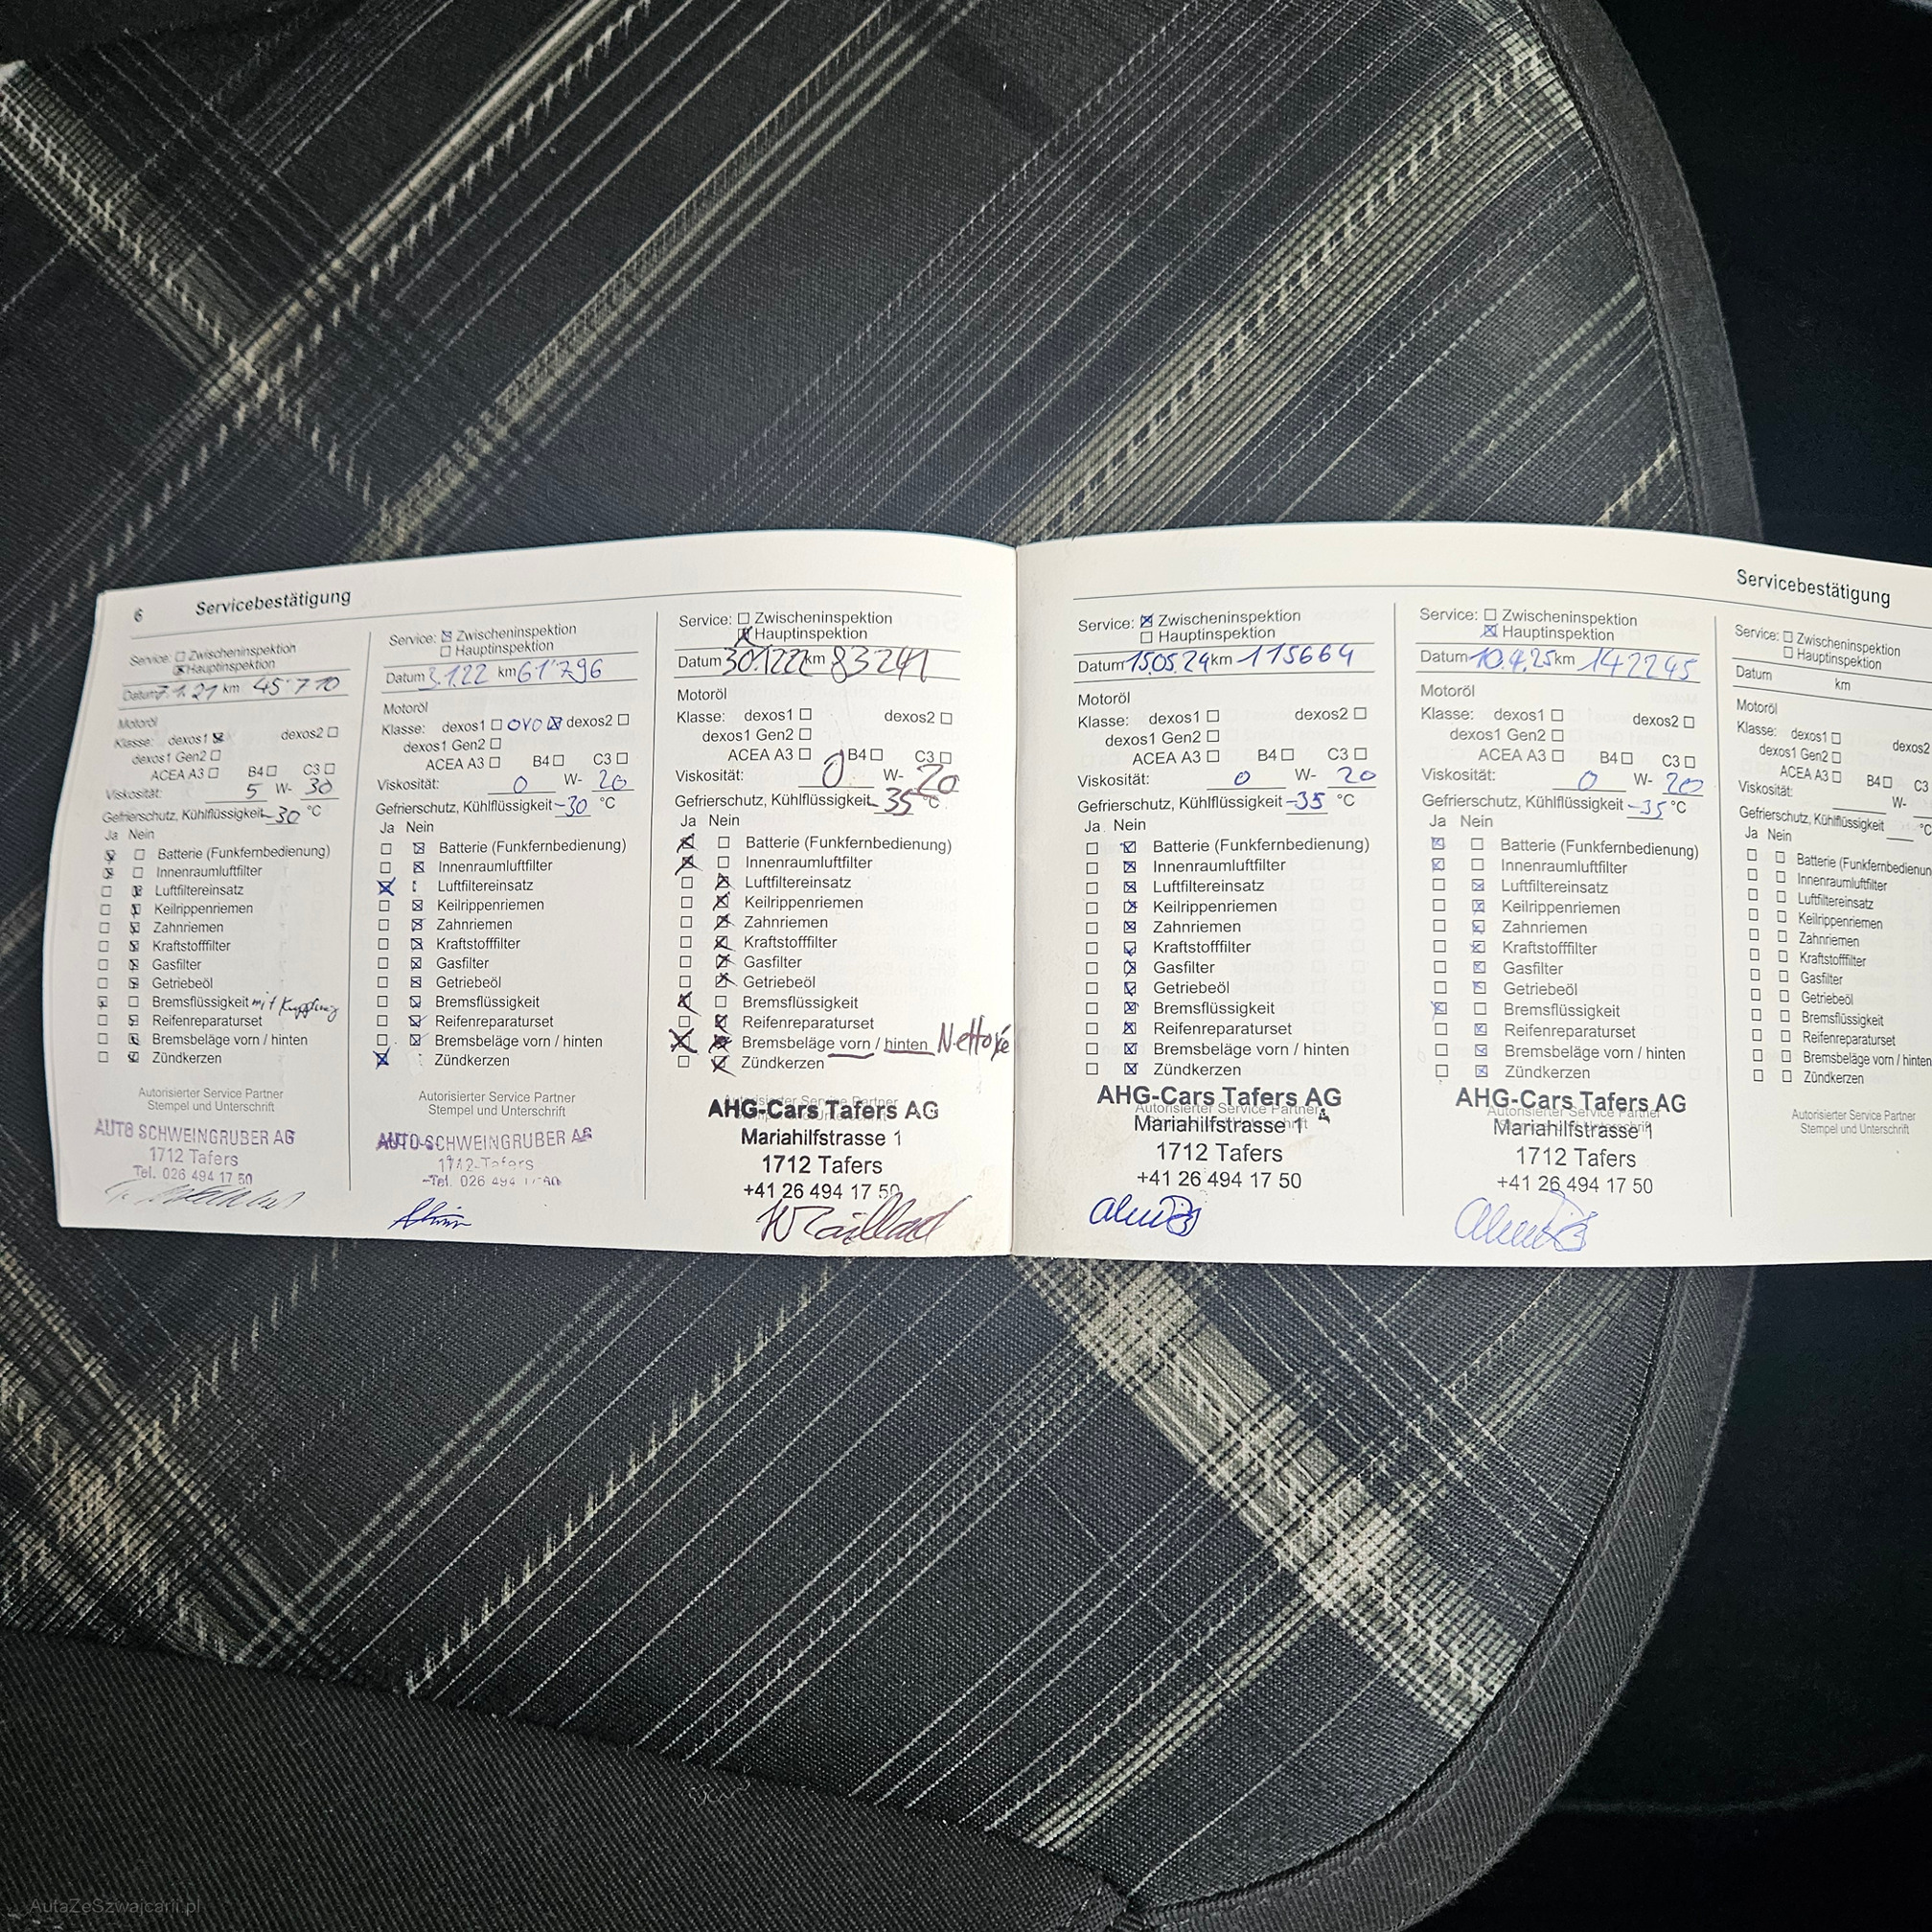 6 Servicebestätigung
Service: ☐ Zwischeninspektion
☒ Hauptinspektion
Datum 7.1.21 km 45'710
Motoröl
Klasse: dexos1 ☒ dexos2 ☐
dexos1 Gen2 ☐
ACEA A3 ☐ B4 ☐ C3 ☐
Viskosität: 5 W- 30
Gefrierschutz, Kühlflüssigkeit -30 °C
Ja Nein
☒ ☐ Batterie (Funkfernbedienung)
☒ ☐ Innenraumluftfilter
☐ ☒ Luftfiltereinsatz
☐ ☒ Keilrippenriemen
☐ ☒ Zahnriemen
☐ ☒ Kraftstofffilter
☐ ☒ Gasfilter
☐ ☒ Getriebeöl
☒ ☐ Bremsflüssigkeit mit Kupplung
☐ ☒ Reifenreparaturset
☐ ☒ Bremsbeläge vorn / hinten
☐ ☒ Zündkerzen
Autorisierter Service Partner
Stempel und Unterschrift
AUTO SCHWEINGRUBER AG
1712 Tafers
Tel. 026 494 17 50
Service: ☒ Zwischeninspektion
☐ Hauptinspektion
Datum 3.1.22 km 61'796
Motoröl
Klasse: dexos1 ☐ OVO ☒ dexos2 ☐
dexos1 Gen2 ☐
ACEA A3 ☐ B4 ☐ C3 ☐
Viskosität: 0 W- 20
Gefrierschutz, Kühlflüssigkeit -30 °C
Ja Nein
☐ ☒ Batterie (Funkfernbedienung)
☐ ☒ Innenraumluftfilter
☒ ☐ Luftfiltereinsatz
☐ ☒ Keilrippenriemen
☐ ☒ Zahnriemen
☐ ☒ Kraftstofffilter
☐ ☒ Gasfilter
☐ ☒ Getriebeöl
☐ ☒ Bremsflüssigkeit
☐ ☒ Reifenreparaturset
☐ ☒ Bremsbeläge vorn / hinten
☒ Zündkerzen
Autorisierter Service Partner
Stempel und Unterschrift
AUTO-SCHWEINGRUBER AG
1712 Tafers
Tel. 026 494 17 50
Service: ☐ Zwischeninspektion
☒ Hauptinspektion
Datum 30.12.22 km 83241
Motoröl
Klasse: dexos1 ☐ dexos2 ☐
dexos1 Gen2 ☐
ACEA A3 ☐ B4 ☐ C3 ☐
Viskosität: 0 W- 20
Gefrierschutz, Kühlflüssigkeit -35 °C
Ja Nein
☒ ☐ Batterie (Funkfernbedienung)
☒ ☐ Innenraumluftfilter
☐ ☒ Luftfiltereinsatz
☐ ☒ Keilrippenriemen
☐ ☒ Zahnriemen
☐ ☒ Kraftstofffilter
☐ ☒ Gasfilter
☐ ☒ Getriebeöl
☒ ☐ Bremsflüssigkeit
☐ ☒ Reifenreparaturset
☒ ☒ Bremsbeläge vorn / hinten Nettoyé
☐ ☒ Zündkerzen
Autorisierter Service Partner
AHG-Cars Tafers AG
Mariahilfstrasse 1
1712 Tafers
+41 26 494 17 50
Servicebestätigung
Service: ☒ Zwischeninspektion
☐ Hauptinspektion
Datum 15.05.24 km 115664
Motoröl
Klasse: dexos1 ☐ dexos2 ☐
dexos1 Gen2 ☐
ACEA A3 ☐ B4 ☐ C3 ☐
Viskosität: 0 W- 20
Gefrierschutz, Kühlflüssigkeit -35 °C
Ja Nein
☐ ☒ Batterie (Funkfernbedienung)
☐ ☒ Innenraumluftfilter
☐ ☒ Luftfiltereinsatz
☐ ☒ Keilrippenriemen
☐ ☒ Zahnriemen
☐ ☒ Kraftstofffilter
☐ ☒ Gasfilter
☐ ☒ Getriebeöl
☐ ☒ Bremsflüssigkeit
☐ ☒ Reifenreparaturset
☐ ☒ Bremsbeläge vorn / hinten
☐ ☒ Zündkerzen
AHG-Cars Tafers AG
Autorisierter Service Partner
Mariahilfstrasse 1
1712 Tafers
+41 26 494 17 50
Service: ☐ Zwischeninspektion
☒ Hauptinspektion
Datum 10.4.25 km 142245
Motoröl
Klasse: dexos1 ☐ dexos2 ☐
dexos1 Gen2 ☐
ACEA A3 ☐ B4 ☐ C3 ☐
Viskosität: 0 W- 20
Gefrierschutz, Kühlflüssigkeit -35 °C
Ja Nein
☒ ☐ Batterie (Funkfernbedienung)
☒ ☐ Innenraumluftfilter
☐ ☒ Luftfiltereinsatz
☐ ☒ Keilrippenriemen
☐ ☒ Zahnriemen
☐ ☒ Kraftstofffilter
☐ ☒ Gasfilter
☐ ☒ Getriebeöl
☒ ☐ Bremsflüssigkeit
☐ ☒ Reifenreparaturset
☐ ☒ Bremsbeläge vorn / hinten
☐ ☒ Zündkerzen
AHG-Cars Tafers AG
Autorisierter Service Partner
Mariahilfstrasse 1
1712 Tafers
+41 26 494 17 50
Service: ☐ Zwischeninspektion
☐ Hauptinspektion
Datum km
Motoröl
Klasse: dexos1 ☐ dexos2
dexos1 Gen2 ☐
ACEA A3 ☐ B4 ☐ C3
Viskosität: W-
Gefrierschutz, Kühlflüssigkeit °C
Ja Nein
☐ ☐ Batterie (Funkfernbedienun
☐ ☐ Innenraumluftfilter
☐ ☐ Luftfiltereinsatz
☐ ☐ Keilrippenriemen
☐ ☐ Zahnriemen
☐ ☐ Kraftstofffilter
☐ ☐ Gasfilter
☐ ☐ Getriebeöl
☐ ☐ Bremsflüssigkeit
☐ ☐ Reifenreparaturset
☐ ☐ Bremsbeläge vorn / hinten
☐ ☐ Zündkerzen
Autorisierter Service Partner
Stempel und Unterschrift
AutaZeSzwajcarii.pl